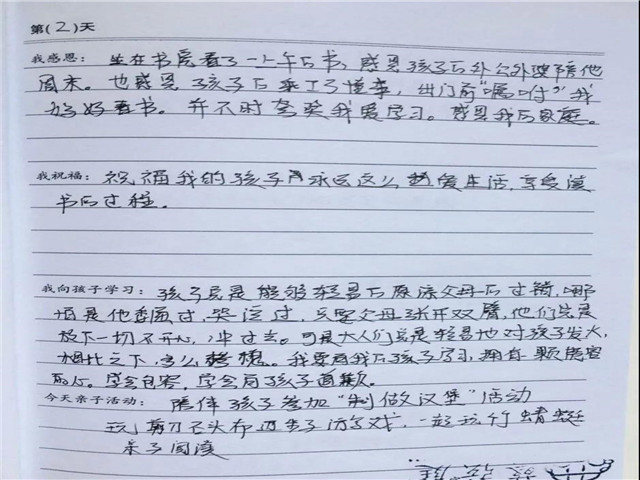 第(2)天
我感恩：坐在书房看了一上午的书，感恩孩子的外公外婆陪他
周末。也感恩孩子的乖巧懂事，出门前“嘱咐”我
好好看书。并不时夸奖我爱学习。感恩我的家庭。
我祝福：祝福我的孩子永远这么热爱生活，享受读
书的过程。
我向孩子学习：孩子总是能够轻易的原谅父母的过错，哪
怕是他委屈过，哭泣过，只要父母张开双臂，他们总是
放下一切不开心，冲过去。可是大人们总是轻易地对孩子发火，
相比之下，多么。我要向我的孩子学习，拥有一颗宽容
的心。学会包容，学会向孩子道歉。
今天亲子活动：陪伴孩子参加“制做汉堡”活动
玩剪刀石头布游戏，一起玩竹蜻蜓
亲子阅读